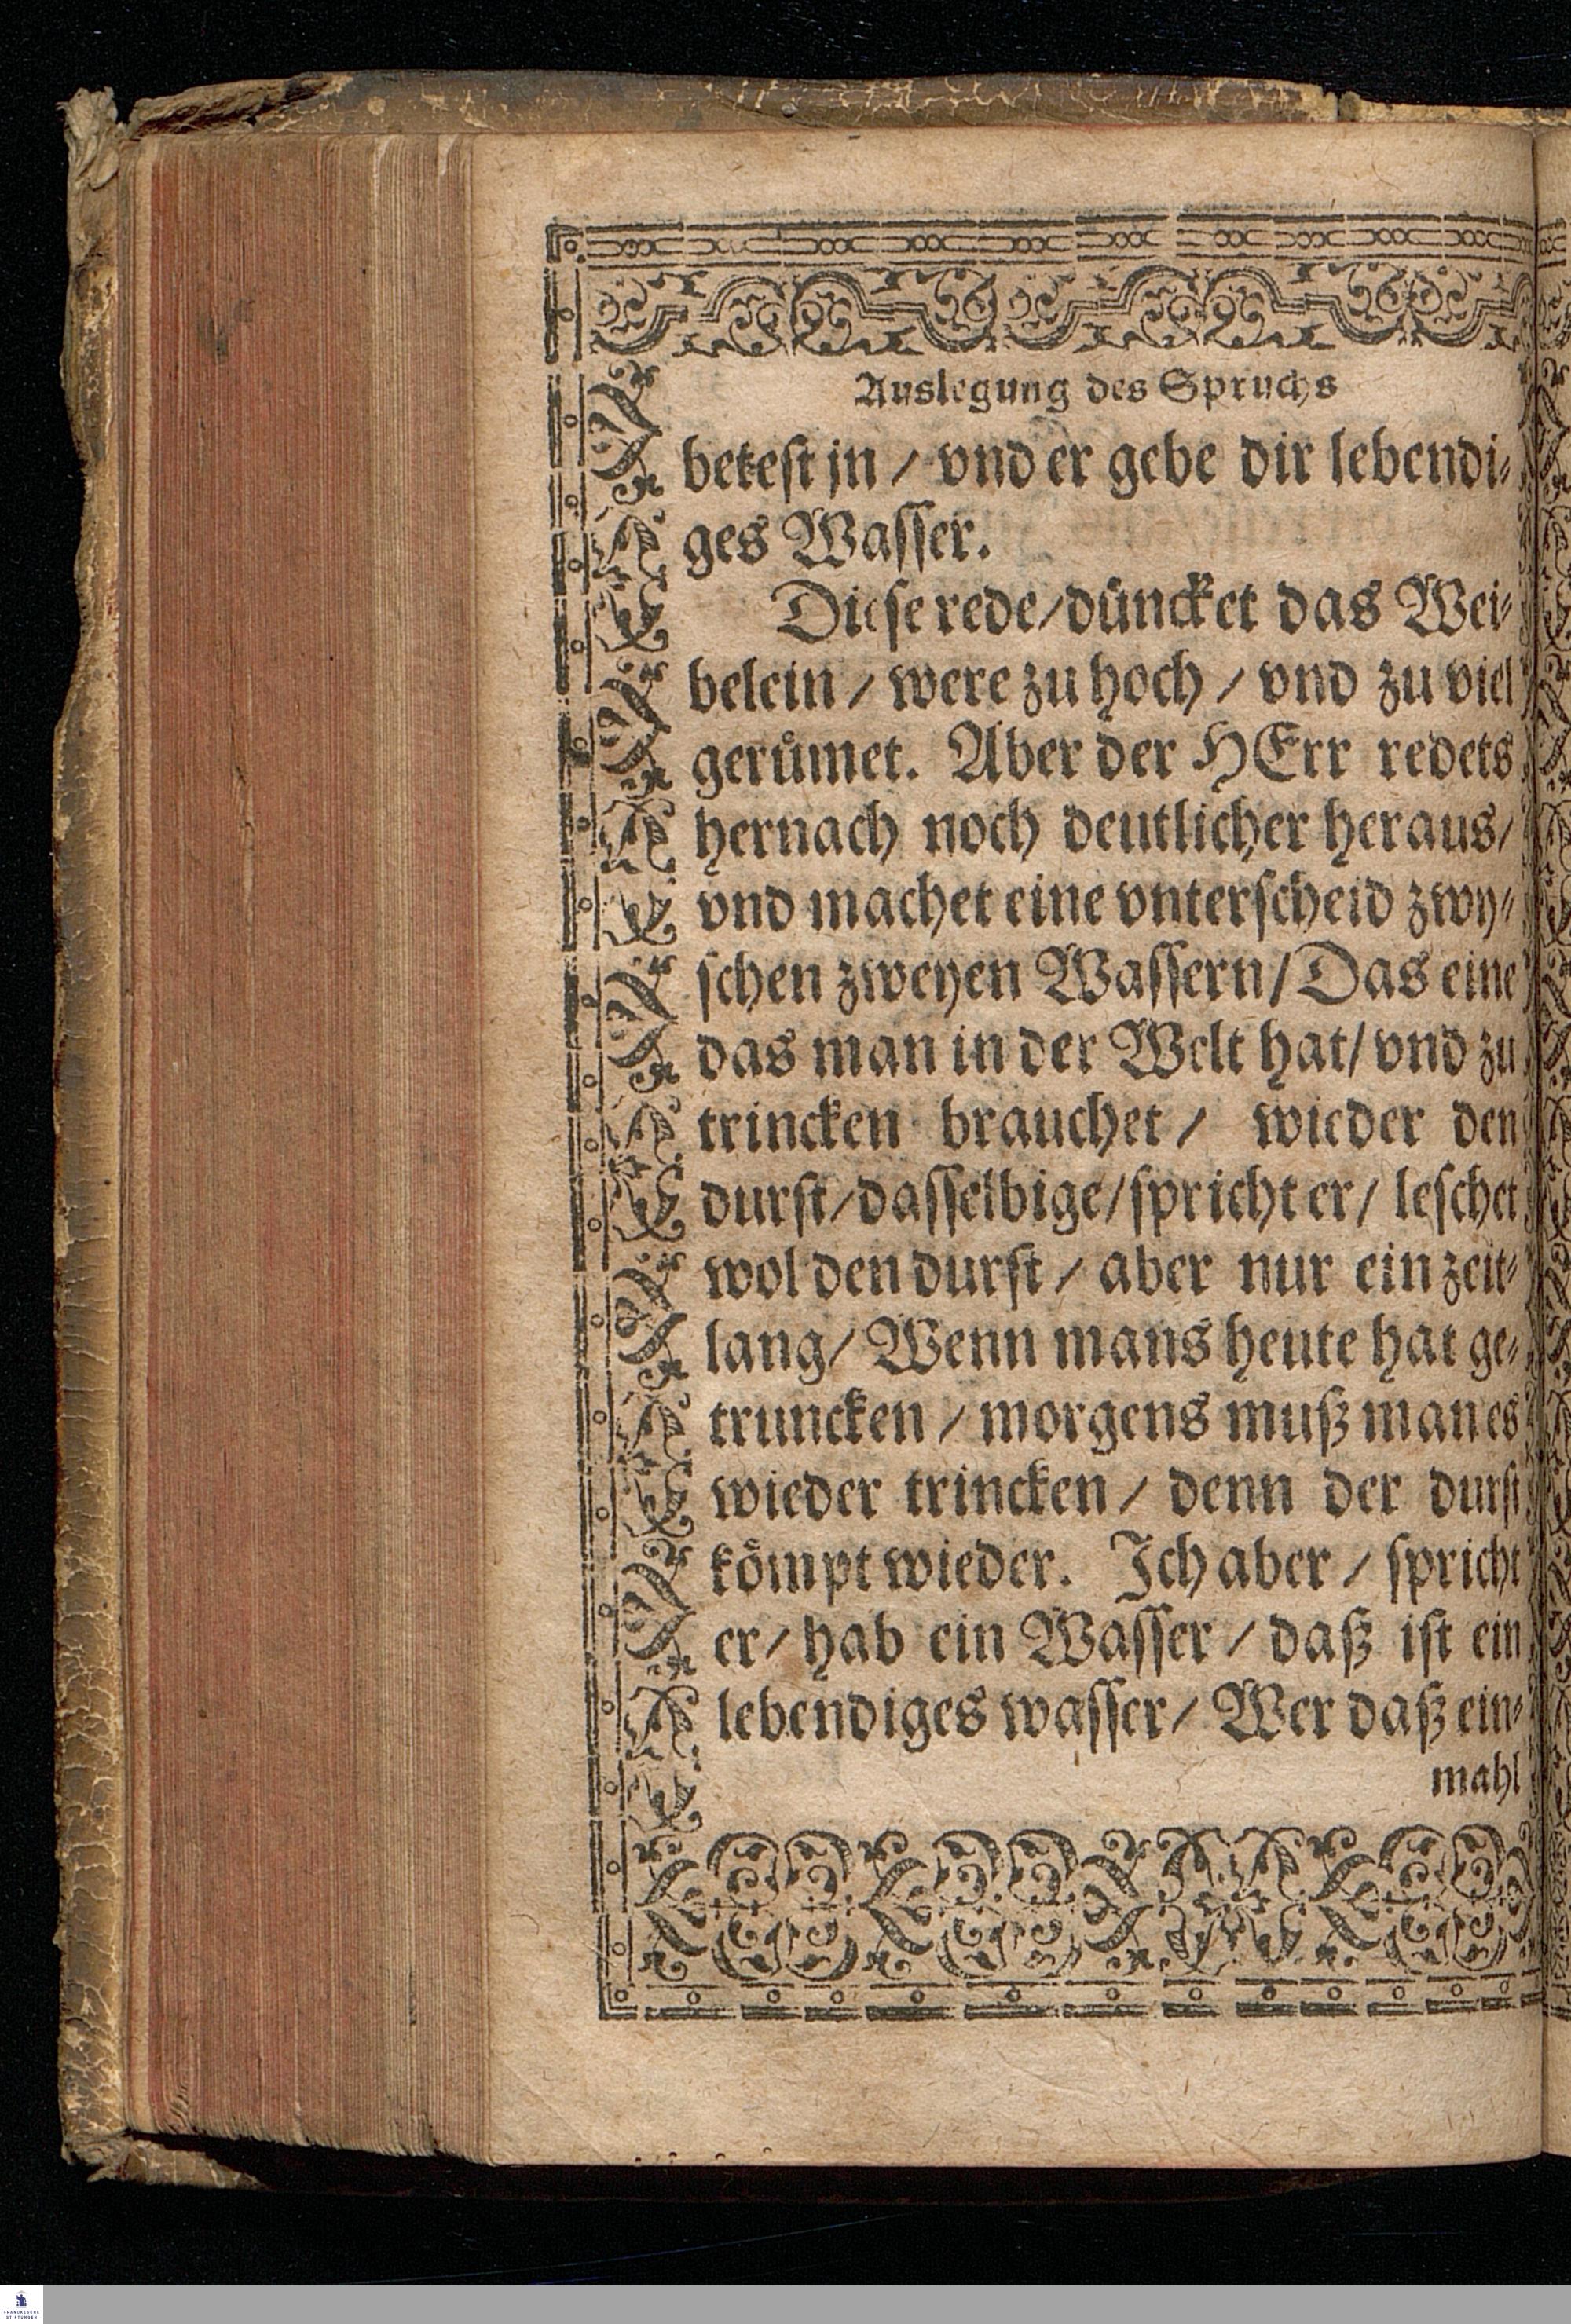 Auslegung des Spruchs
betest jn / vnd er gebe dir lebendi⸗
ges Wasser.
Diese rede / düncket das Wei⸗
belein / were zu hoch / vnd zu viel
gerümet. Aber der HErr redets
hernach noch deutlicher heraus /
vnd machet eine vnterscheid zwy⸗
schen zweyen Wassern / Das eine
das man in der Welt hat / vnd zu
trincken brauchet / wieder den
durst / dasselbige / spricht er / leschet
wol den durst / aber nur ein zeit⸗
lang / Wenn mans heute hat ge⸗
truncken / morgens muß man es
wieder trincken / denn der durst
kömpt wieder. Ich aber / spricht
er / hab ein Wasser / daß ist ein
lebendiges wasser / Wer daß ein⸗
mahl
FRANCKESCHE
STIFTUNGEN